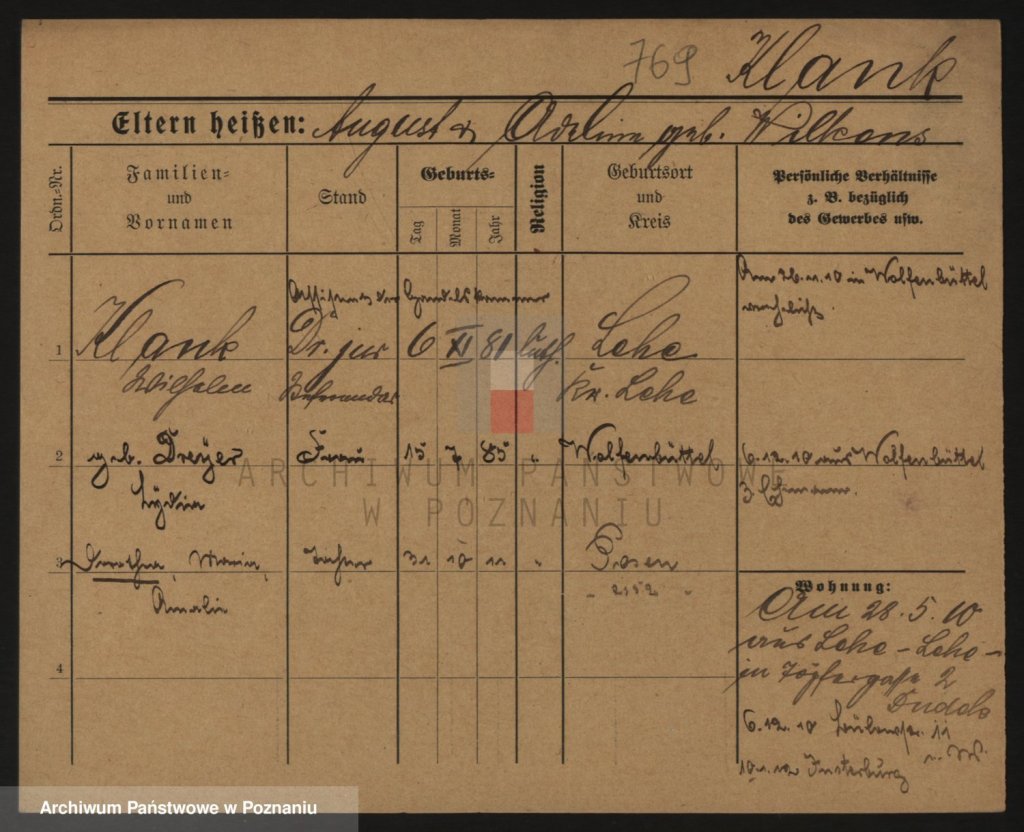 769 Klank
Eltern heißen: August & Adeline geb. Wilkens
Ordn.=Nr.
Familien=
und
Vornamen
Stand
Geburts=
Tag
Monat
Jahr
Religion
Geburtsort
und
Kreis
Persönliche Verhältnisse
z. B. bezüglich
des Gewerbes usw.
der Handelskammer
Am 26.11.10 in Wolfenbüttel
verehelicht.
1 Klank Dr. jur 6 XI 81 luth. Lehe
Wilhelm Referendar Kr. Lehe
2 geb. Dreyer Frau 15 7 85 " Wolfenbüttel
Lydia
6.12.10 aus Wolfenbüttel
z. Ehemann.
3 Dorothea, Maria, Tochter 31 10 11 " Posen
Amalie " 2152 "
4
Wohnung:
Am 28.5.10
aus Lehe - Lehe -
in Töpfergasse 2
6.12.10 11
10.1.12 Insterburg
ARCHIWUM PAŃSTWOWE
W POZNANIU
Archiwum Państwowe w Poznaniu